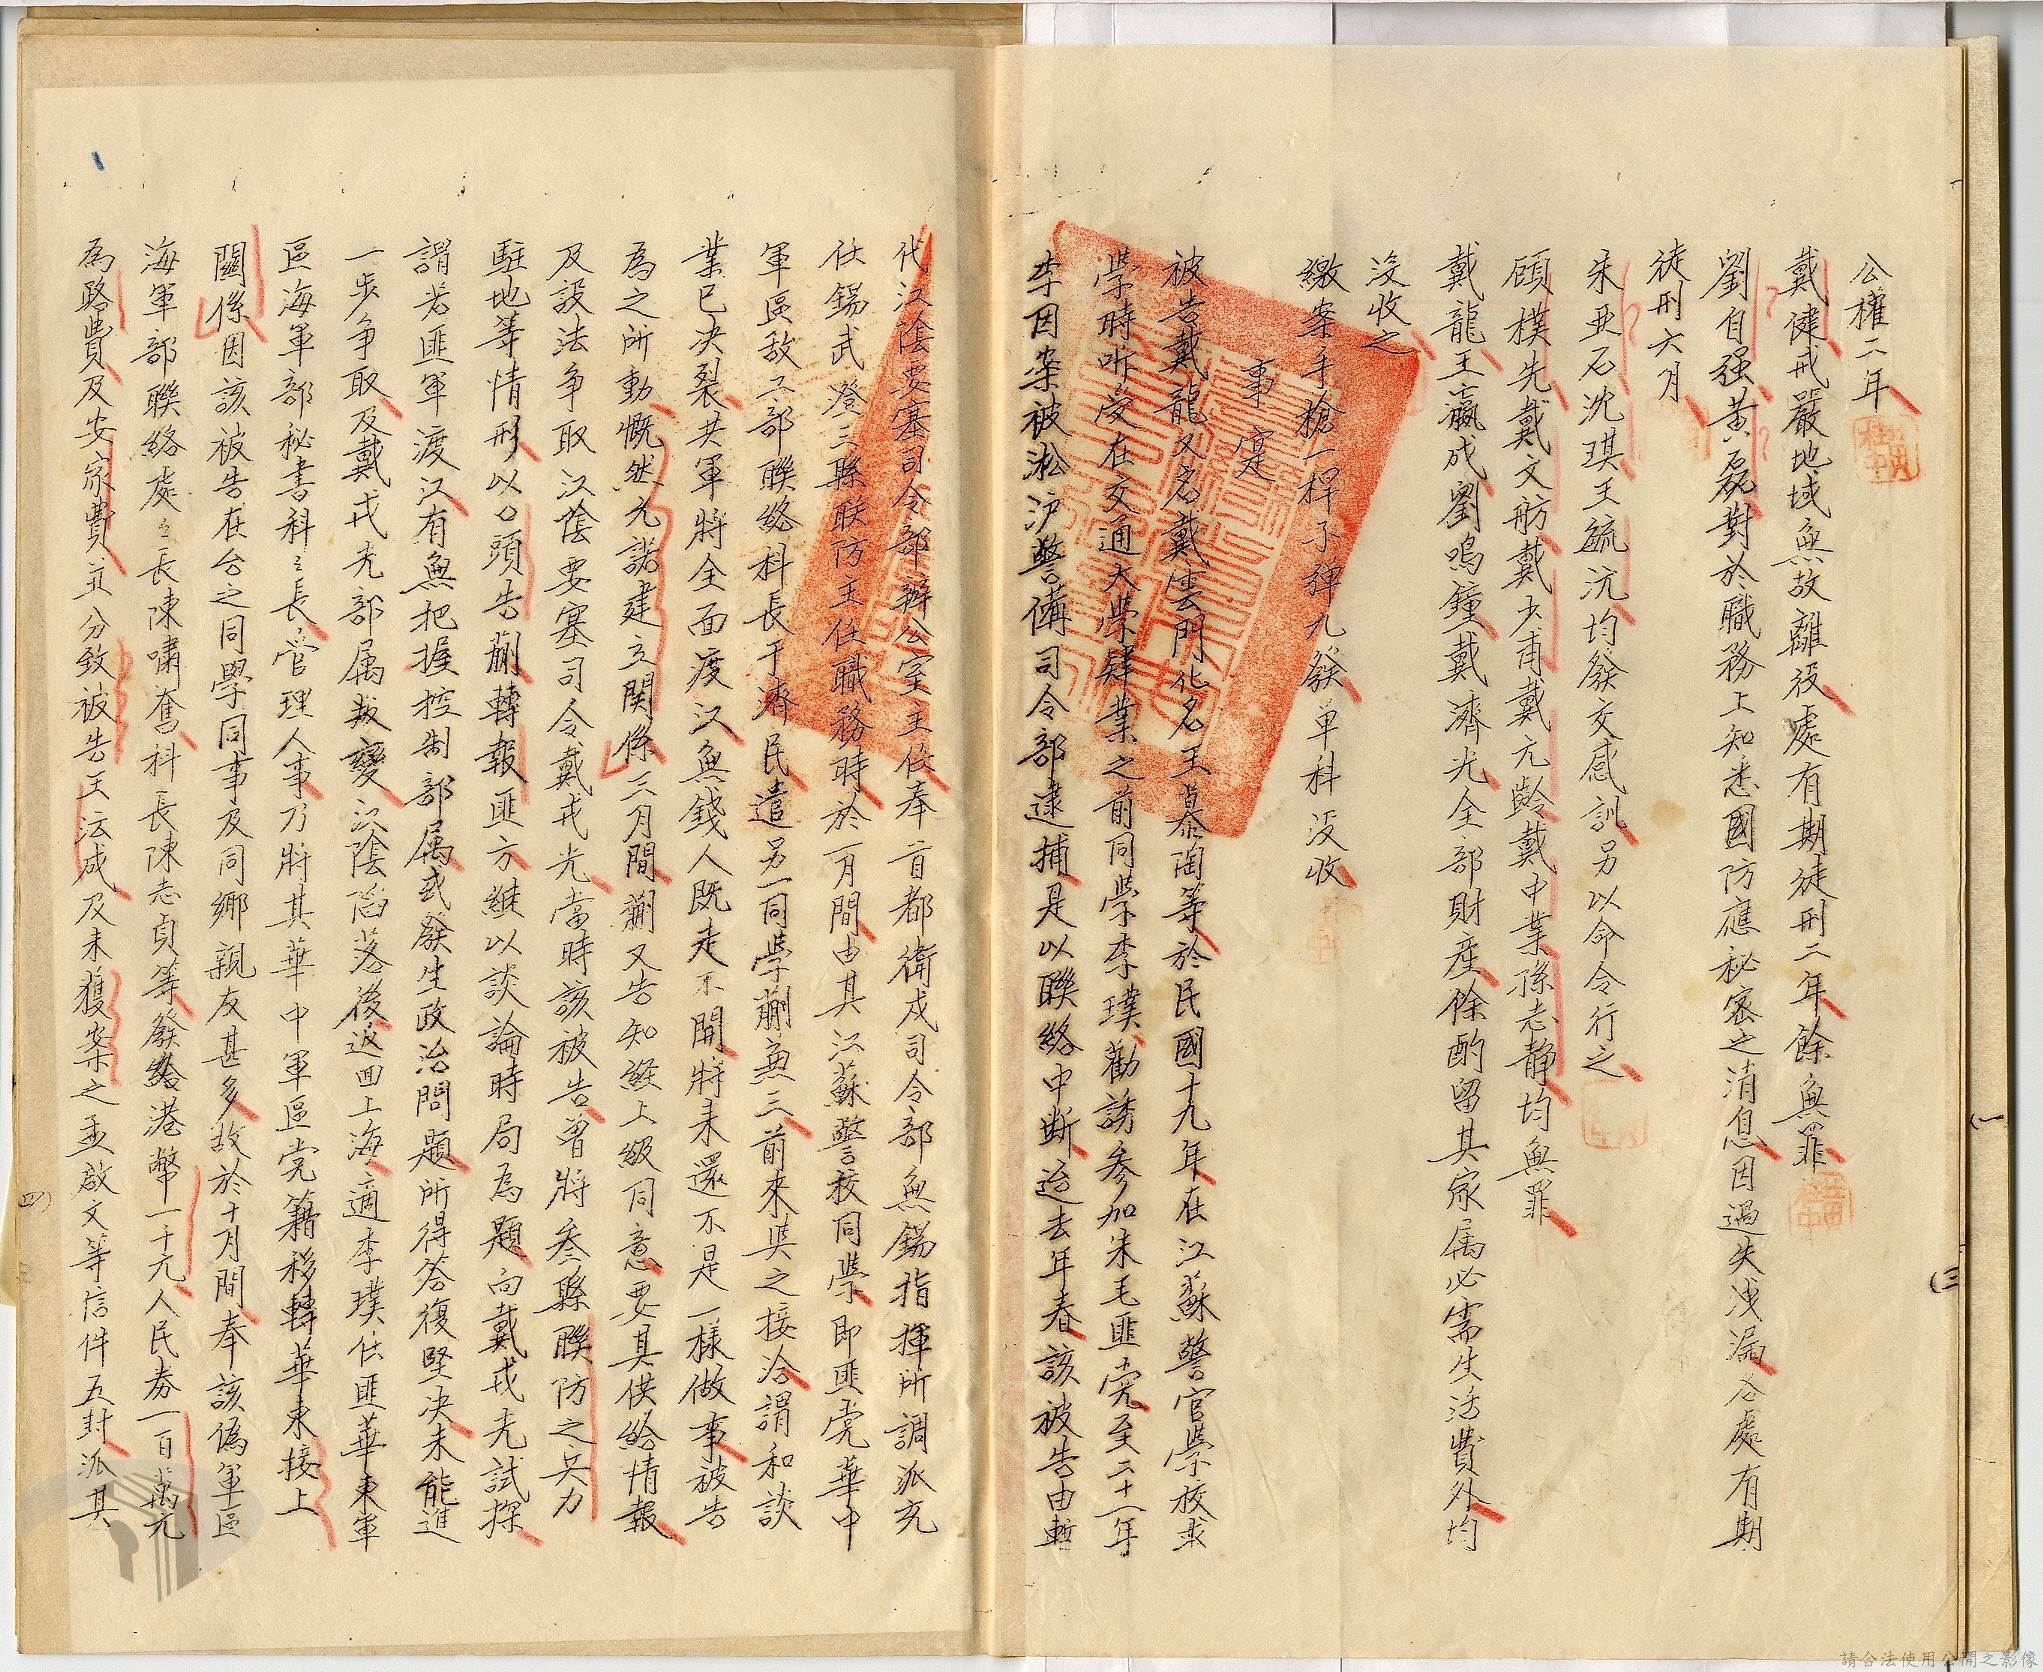 公權二年
戴健戒嚴地域無故離役處有期徒刑二年餘無罪
劉自强黃磊對於職務上知悉國防應秘密之消息因過失洩漏各處有期
徒刑六月
朱亞石沈琪王毓沆均發交感訓另以命令行之
顧樸先戴文舫戴大甫戴元齡戴中業孫志靜均無罪
戴龍王瀛成劉鳴鐘戴濟光全部財產除酌留其家属必需生活費外均
沒收之
繳案手槍一桿子彈九發單科沒收
事實
被告戴龍又名戴雲門化名王慕陶等於民國十九年在江蘇警官學校求
學時吸受在交通大學肄業之前同學李璞勸誘參加朱毛匪党至二十一年
李因案被淞沪警備司令部逮捕是以聯絡中斷迨去年春該被告由暫
代江陰要塞司令部辦公室主任奉首都衛戍司令部無錫指揮所調派充
任錫武澄三縣联防主任職務時於一月間由其江蘇警校同學即匪党華中
軍區敌工部聯絡科長于濟民遣另一同學蒯兼三前來與之接洽謂和談
業已决裂共軍將全面渡江無錢人既走不開將来還不是一樣做事被告
為之所動慨然允諾建立関係三月間蒯又告知經上級同意要其供給情報
及設法争取江陰要塞司令戴戎光當時該被告曾將叁縣聯防之兵力
駐地等情形以口頭告蒯轉報匪方繼以談論時局為題向戴戎光試探
謂若匪軍渡江有無把握控制部属或發生政治問題所得答復堅决未能進
一步争取及戴戎光部属叛變江陰陷落後返囬上海適李璞任匪華東軍
區海軍部秘書科之長管理人事乃將其華中軍區党籍移轉華東接上
關係因該被告在台之同學同事及同鄉親友甚多故於十月間奉該偽軍區
海軍部聯絡處之長陳嘯奮科長陳志貞等發給港幣一千元人民券一百萬元
為路費及安家費並分致被告王法成及未獲案之孟啟文等信件五封派其